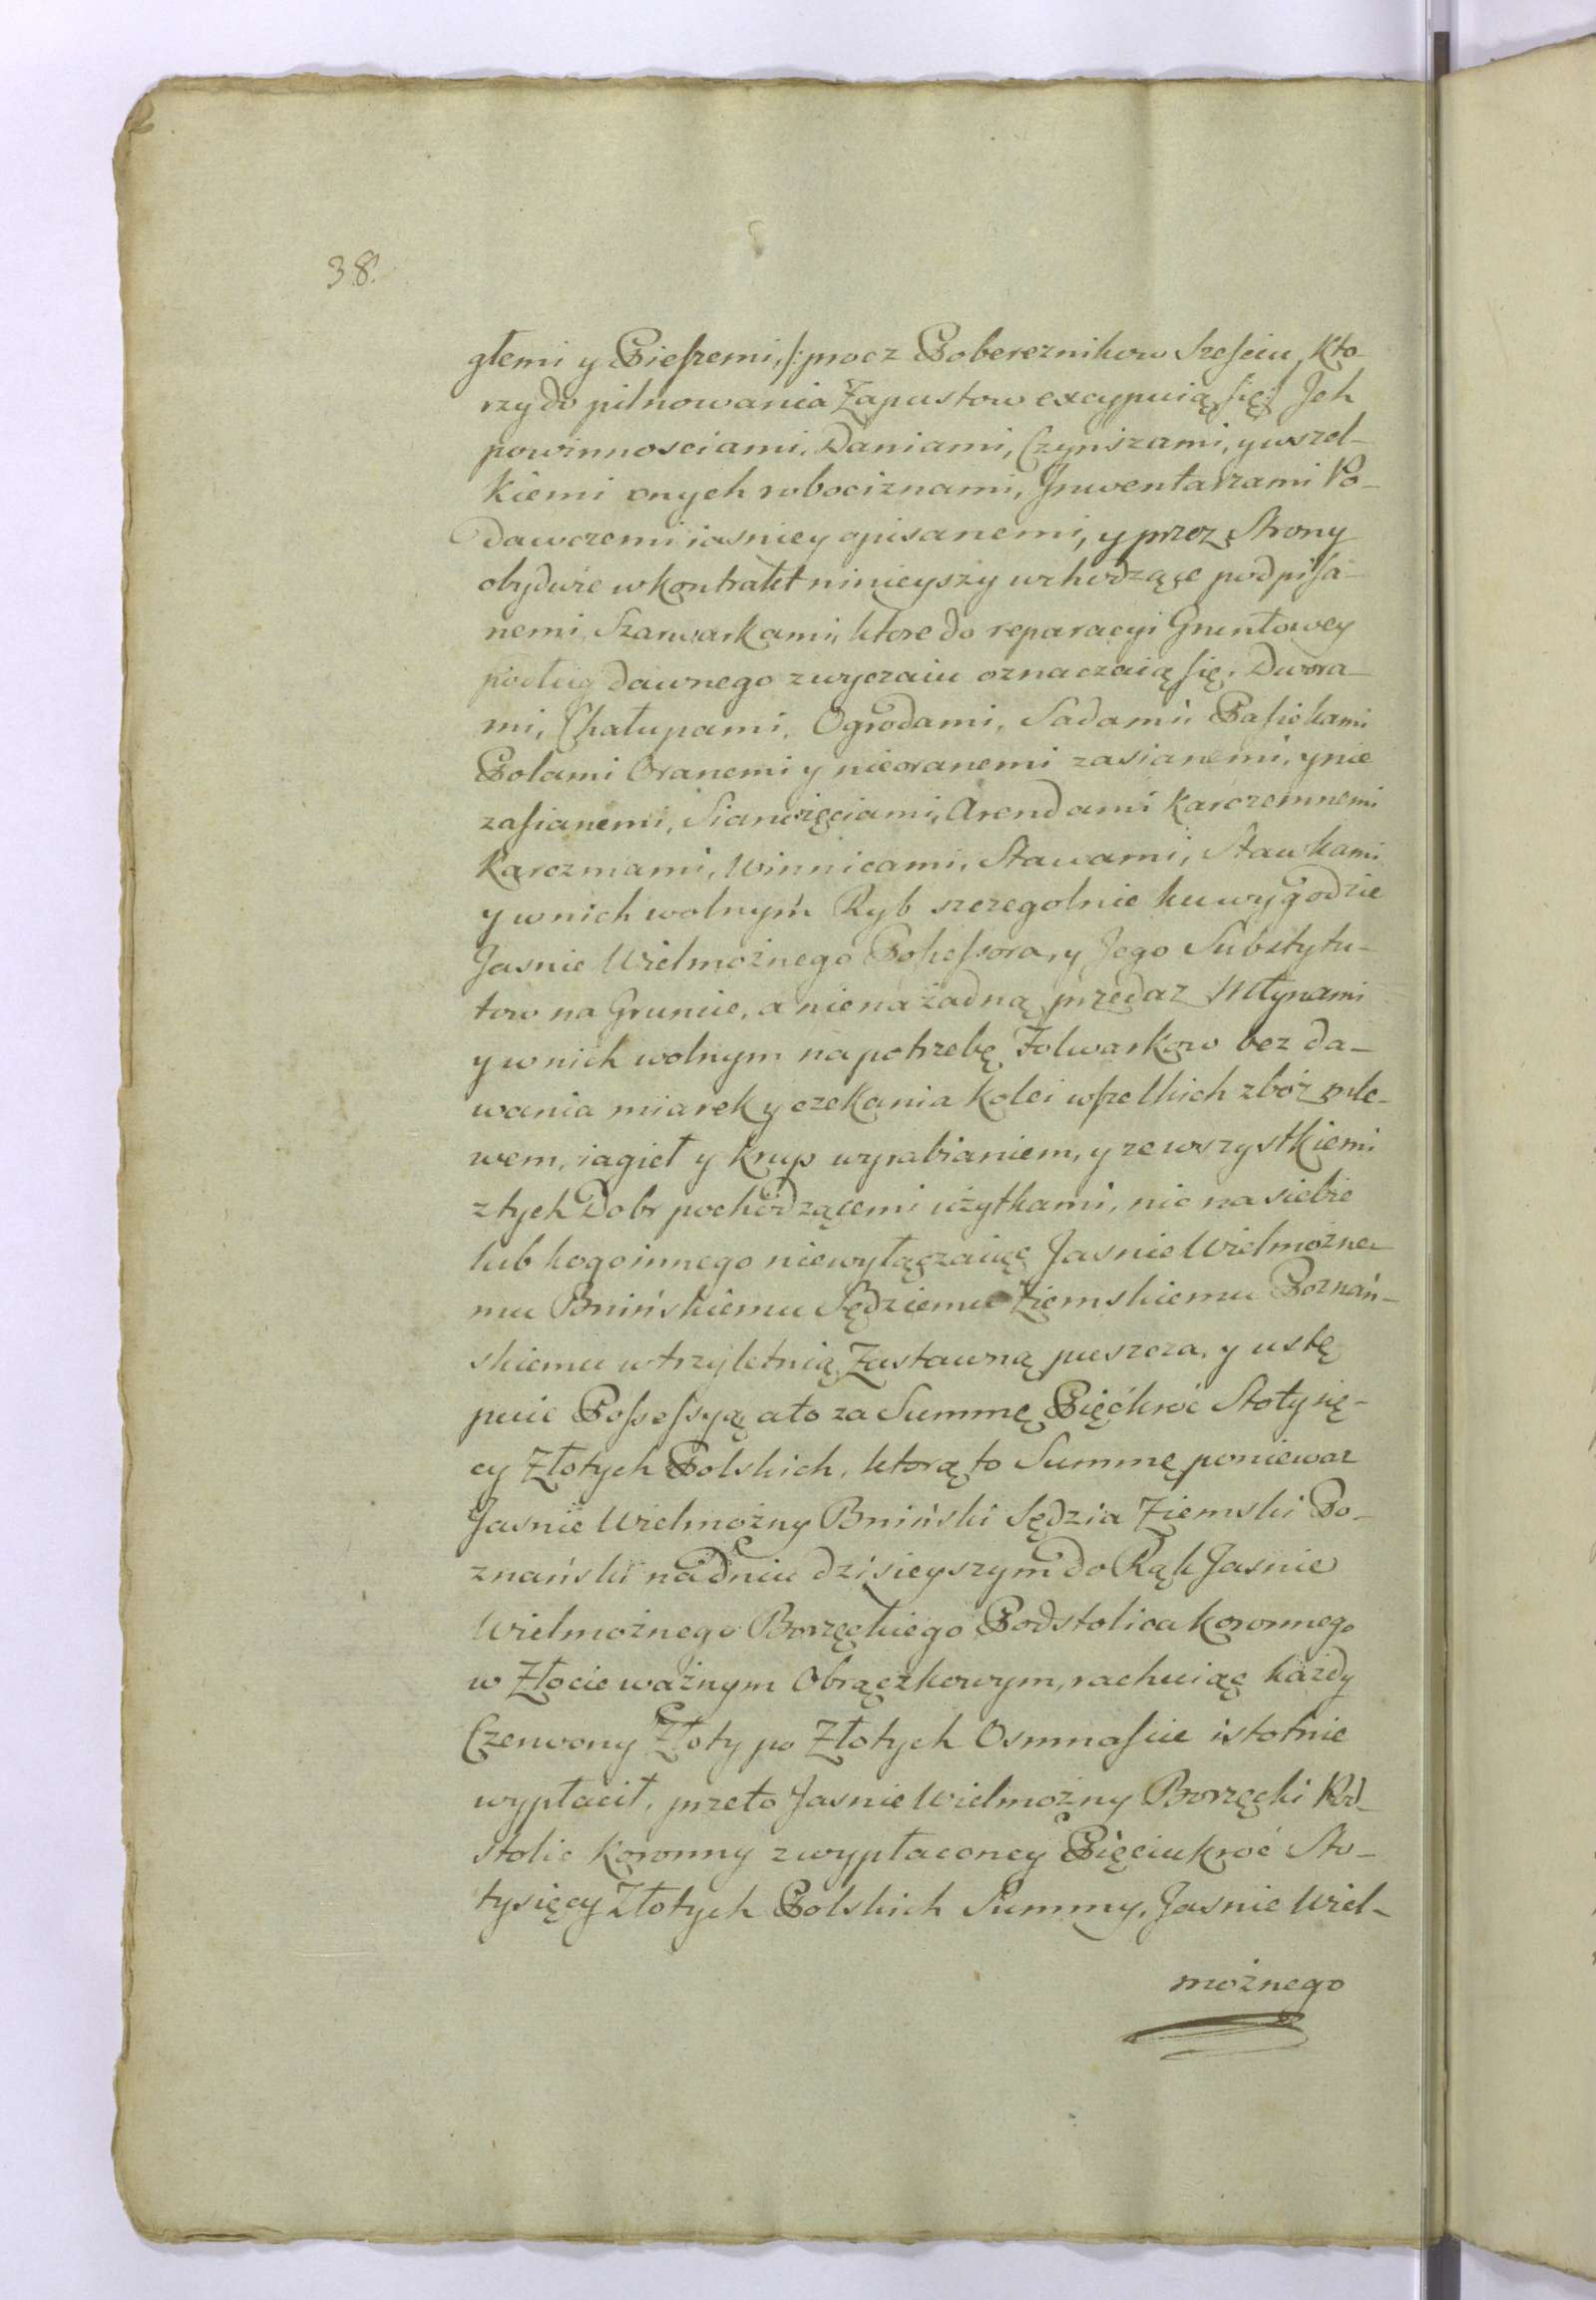 38.
głemi y Pieszemi, /: procz Pobereznikow Szesciu, kto-
rzy do pilnowania Zapustow excypuią się :/ Jch
powinnosciami, Daniami, Czynszami, y wszel-
kiemi onych robociznami, Jnwentarzami Po-
dawczemi iasniey opisanemi, y przez Strony
obydwie w kontrakt ninieyszy wchodzące podpisa-
nemi, Szarwarkami, ktore do reparacyi Gruntowey
podług dawnego zwyczaiu oznaczaią się, Dwora-
mi, Chałupami, Ogrodami, Sadami Pasiekami
Polami Oranemi y nieoranemi zasianemi, y nie
zasianemi, Sianozęciami, Arendami karczemnemi
Karczmami, Winnicami, Stawami, Stawkami
y w nich wolnym Ryb szczegolnie ku wygodzie
Jasnie Wielmożnego Possessora, y Jego Substytu-
tow na Gruncie, a nie na żadną przedaz Młynami
y w nich wolnym na potrzebę Folwarkow bez da-
wania miarek y czekania kolei wszelkich zbóż mle-
wem, iagieł y krup wyrabianiem, y ze wszystkiemi
z tych Dobr pochodzącemi użytkami, nic na siebie
lub kogo innego niewyłączaiąc Jasnie Wielmożne-
mu Bnińskiemu Sędziemu Ziemskiemu Poznań-
skiemu w trzyletnią Zastawną puszcza, y ustę
puie Possessyą a to za Summę Pięćkroć Stotysię-
cy Złotych Polskich, ktorą to Summę poniewaz
Jasnie Wielmożny Bniński Sędzia Ziemski Po-
znański na dniu dzisieyszym do Rąk Jasnie
Wielmożnego Borzęckiego Podstolica koronnego
w Złocie ważnym Obrączkowym, rachuiąc każdy
Czerwony Złoty po Złotych Osmnascie istotnie
wypłacił, przeto Jasnie Wielmożny Borzęcki Pod-
stolic koronny z wypłaconey Pięciukroć Sto-
tysięcy Złotych Polskich Summy, Jasnie Wiel-
możnego